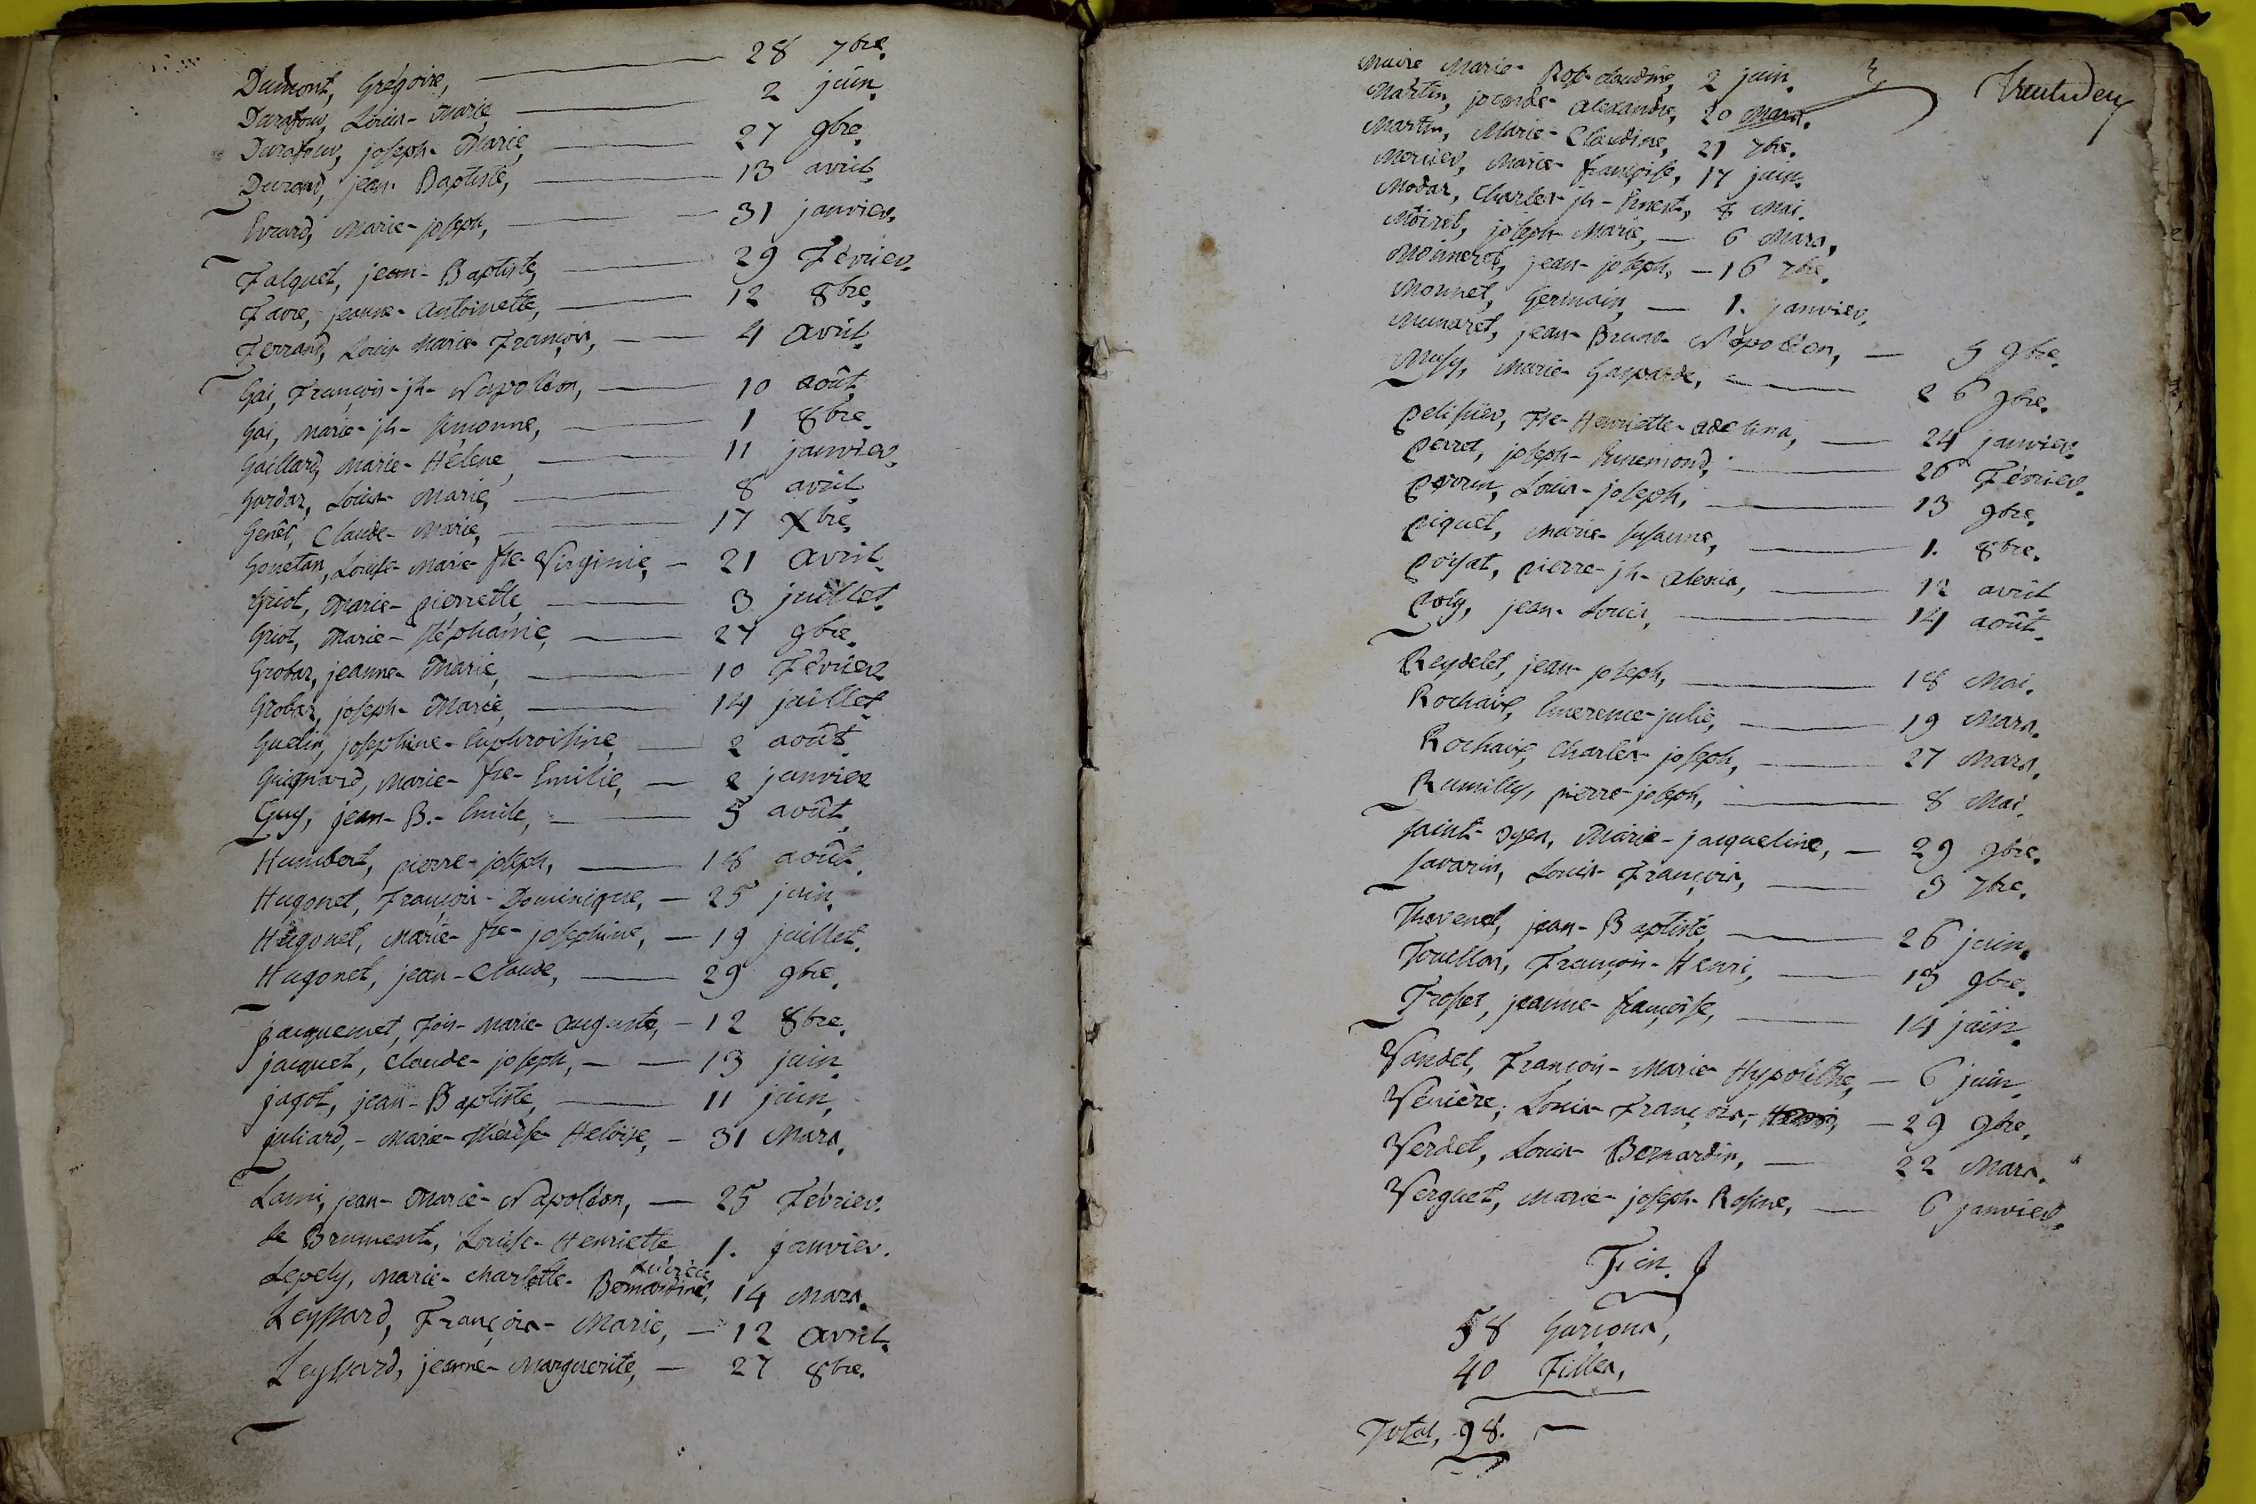 Dumont, Grégoire, 28 7bre.
Durafour, Louis-Marie, 2 juin.
Durafour, joseph-Marie, 27 9bre.
Durand, jean-Baptiste, 13 avril.
Evrard, Marie-joseph, 31 janvier.
Falquet, jean-Baptiste, 29 Février.
Favre, jeanne-antoinette, 12 8bre.
Ferrand, Louis-Marie-François, 4 avril.
Gai, François-jh-Napoléon, 10 août.
Gai, Marie-jh-simonne, 1 8bre.
Gaillard, Marie-Hélène, 11 janvier.
Gardaz, Louis-Marie, 8 avril.
Genêt, Claude-Marie, 17 Xbre.
Gonetan, Louise-Marie-fse-Virginie, 21 avril.
Griot, Marie-pierrette, 3 juillet.
Griot, Marie-stéphanie, 27 9bre.
Grobaz, jeanne-Marie, 10 Février
Grobaz, joseph-Marie, 14 juillet.
Guelin, josephine-Euphroisine, 2 août.
Guignard, Marie-fse-Emilie, 2 janvier
Guy, jean-B.-Emile, 5 août.
Humbert, pierre-joseph, 18 août.
Hugonet, François-Dominique, 25 juin.
Hugonet, Marie-fse-josephine, 19 juillet.
Hugonet, jean-Claude, 29 9bre.
jacquemet, fois-Marie-auguste, 12 8bre.
jacquet, Claude-joseph, 13 juin.
jagot, jean-Baptiste, 11 juin.
juliard, Marie-thérèse Heloïse, 31 Mars.
Lami, jean-Marie-Napoléon, 25 Février.
le Brument, Louise-Henriette, 1. janvier.
Lepely, Marie-charlotte-Bernardine, 14 Mars.
Leyssard, François-Marie, 12 avril.
Leyssard, jeanne-Marguerite, 27 8bre.
Trentedeux
Maire Marie-Rose-claudine, 2 juin.
Martin, jean-alexandre, 20 Mars.
Martin, Marie-Claudine, 21 7bre.
Mercier, Marie-françoise, 17 juin.
Modas, Charles-jh-Ernest, 8 Mai.
Moiret, joseph-Marie, 6 Mars.
Moinneret, jean-joseph, 16 7bre.
Monnet, Germain, 1. janvier.
Munaret, jean-Bruno-Napoléon, 5 9bre.
Musy, Marie-Gasparde, 26 9bre.
pelissier, fse-Henriette-adelina, 24 janvier.
perret, joseph-Ennemond, 26 Février.
perrin, Louis-joseph, 13 9bre.
piquet, Marie-susanne, 1. 8bre.
poisat, pierre-jh-alexis, 12 avril
poly, jean-Louis, 14 août.
Reydelet, jean-joseph, 18 Mai.
Rochaix, Emerence-julie, 19 Mars.
Rochaix, Charles-joseph, 27 Mars.
Rumilly, pierre-joseph, 8 Mai.
saint-oyen, Marie-jacqueline, 29 9bre.
savarin, Louis-François, 3 7bre.
Thevenet, jean-Baptiste, 26 juin.
Touillon, François-Henri, 13 9bre.
Frosset, jeanne-françoise, 14 juin.
Vandel, François-Marie-Hypolithe, 6 juin.
Venière, Louis-François, 29 9bre.
Verdet, Louis-Bernardin, 22 Mars.
Verguet, Marie-joseph-Rosine, 6 janvier.
Fin.
58 Garçons,
40 Filles,
Total, 98.